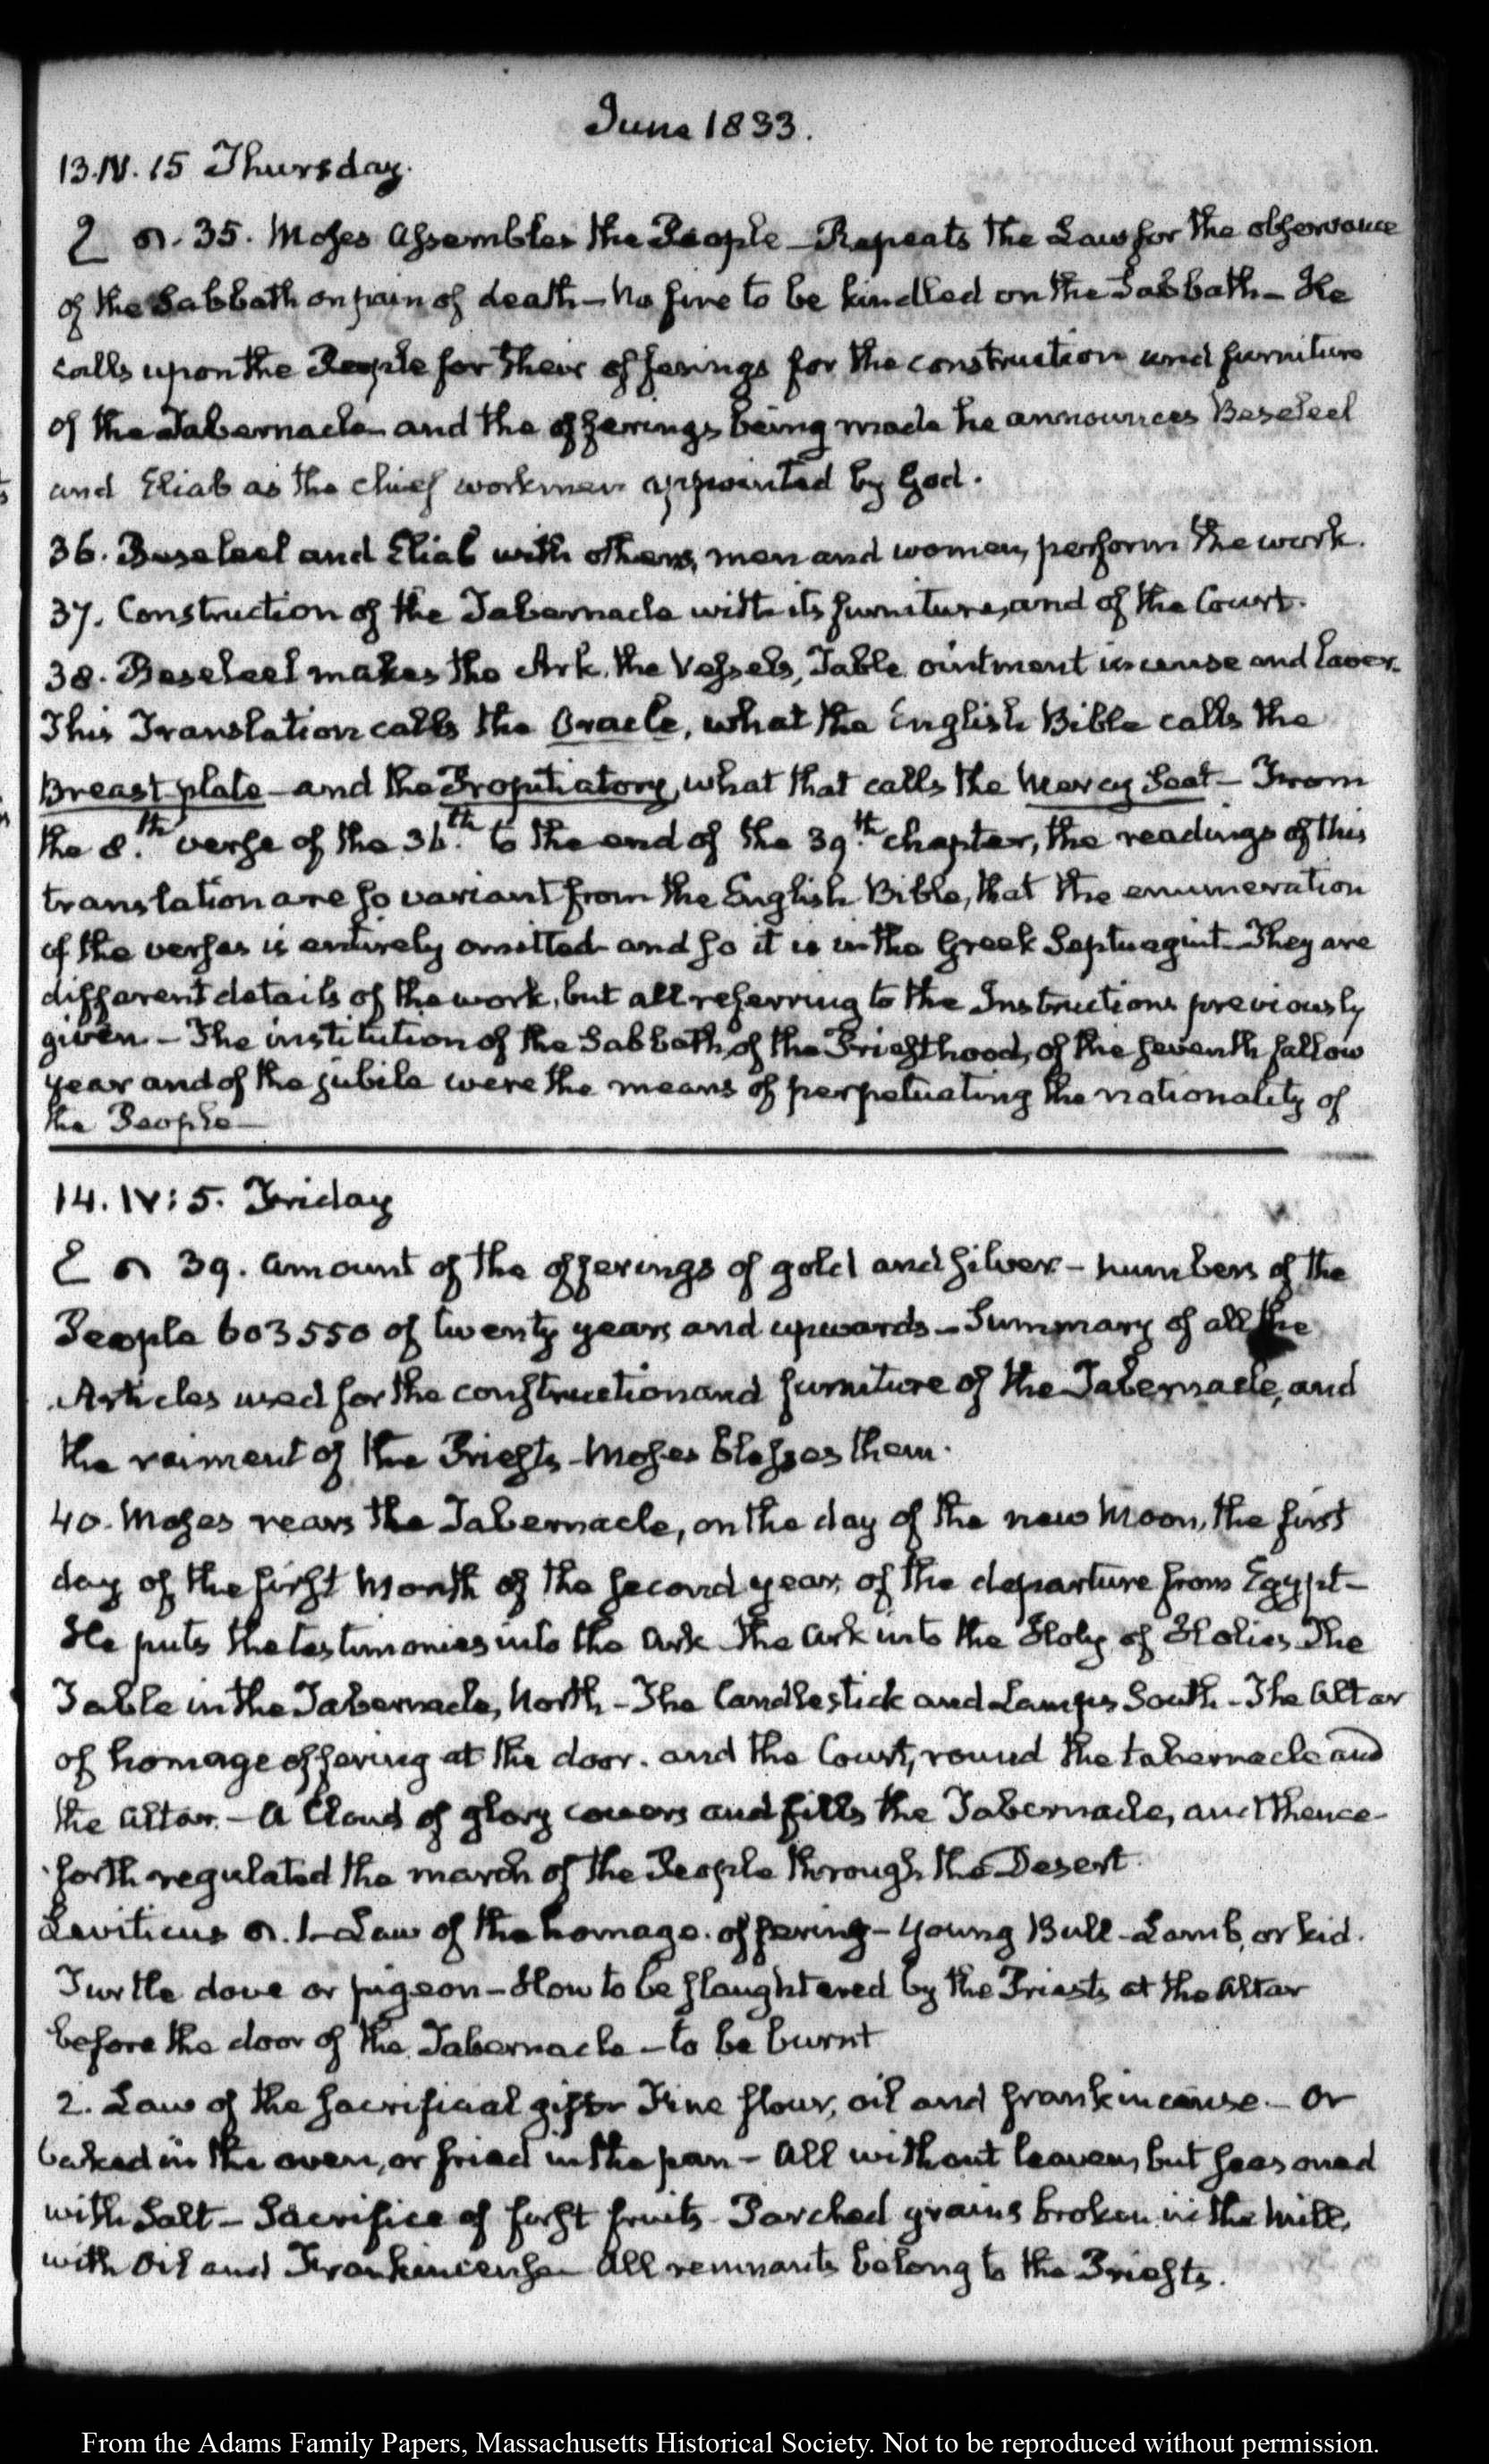 June 1833.
13. IV. 15 Thursday.
35. Moses Assembles the People – Repeats the Law for the observance
of the Sabbath on pain of death – No fire to be kindled on the Sabbath – He
calls upon the People for their offerings for the construction and furniture
of the Tabernacle and the offerings being made he announces Beseleel
and Eliab as the chief workmen appointed by God.
36. Beseleel and Eliab with others, men and women, perform the work.
37. Construction of the Tabernacle with its furniture, and of the Court.
38. Beseleel makes the Ark, the Vessels, Table ointment incense and Laver.
This Translation calls the Oracle, what the English Bible calls the
Breast plate – and the Propitiatory, what that calls the Mercy Seat – From
the 8.th verse of the 36.th to the end of the 39.th chapter, the readings of this
translation are so variant from the English Bible, that the enumeration
of the verses is entirely omitted and so it is in the Greek Septuagint – They are
different details of the work, but all referring to the Instructions previously
given – The institution of the Sabbath, of the Priesthood, of the seventh fallow
year and of the jubile were the means of perpetuating the nationality of
the People –
14. IV: 5. Friday
39. Amount of the offerings of gold and silver – numbers of the
People 603550 of twenty years and upwards – Summary of all the
Articles used for the construction and furniture of the Tabernacle, and
the raiment of the Priests – Moses blesses them.
40. Moses rears the Tabernacle, on the day of the new Moon, the first
day of the first Month of the second year, of the departure from Egypt –
He puts the testimonies into the Ark the Ark into the Holy of Holies The
Table in the Tabernacle, North – The Candlestick and Lamps South – The Altar
of homage offering at the door. and the Court, round the tabernacle and
the Altar. – A Cloud of glory covers and fills the Tabernacle, and thence-
forth regulated the march of the People through the Desert.
Leviticus 1 – Law of the homage offering – Young Bull – Lamb, or kid.
Turtle dove or pigeon – How to be slaughtered by the Priests at the Altar
before the door of the Tabernacle – to be burnt
2. Law of the sacrificial gift Fine flour, oil and frankincense – Or
baked in the oven, or fried in the pan – All without leaven, but seasoned
with Salt – Sacrifice of first fruits – Parched grains broken in the Mill,
with Oil and Frankincense All remnants belong to the Priests.
From the Adams Family Papers, Massachusetts Historical Society. Not to be reproduced without permission.